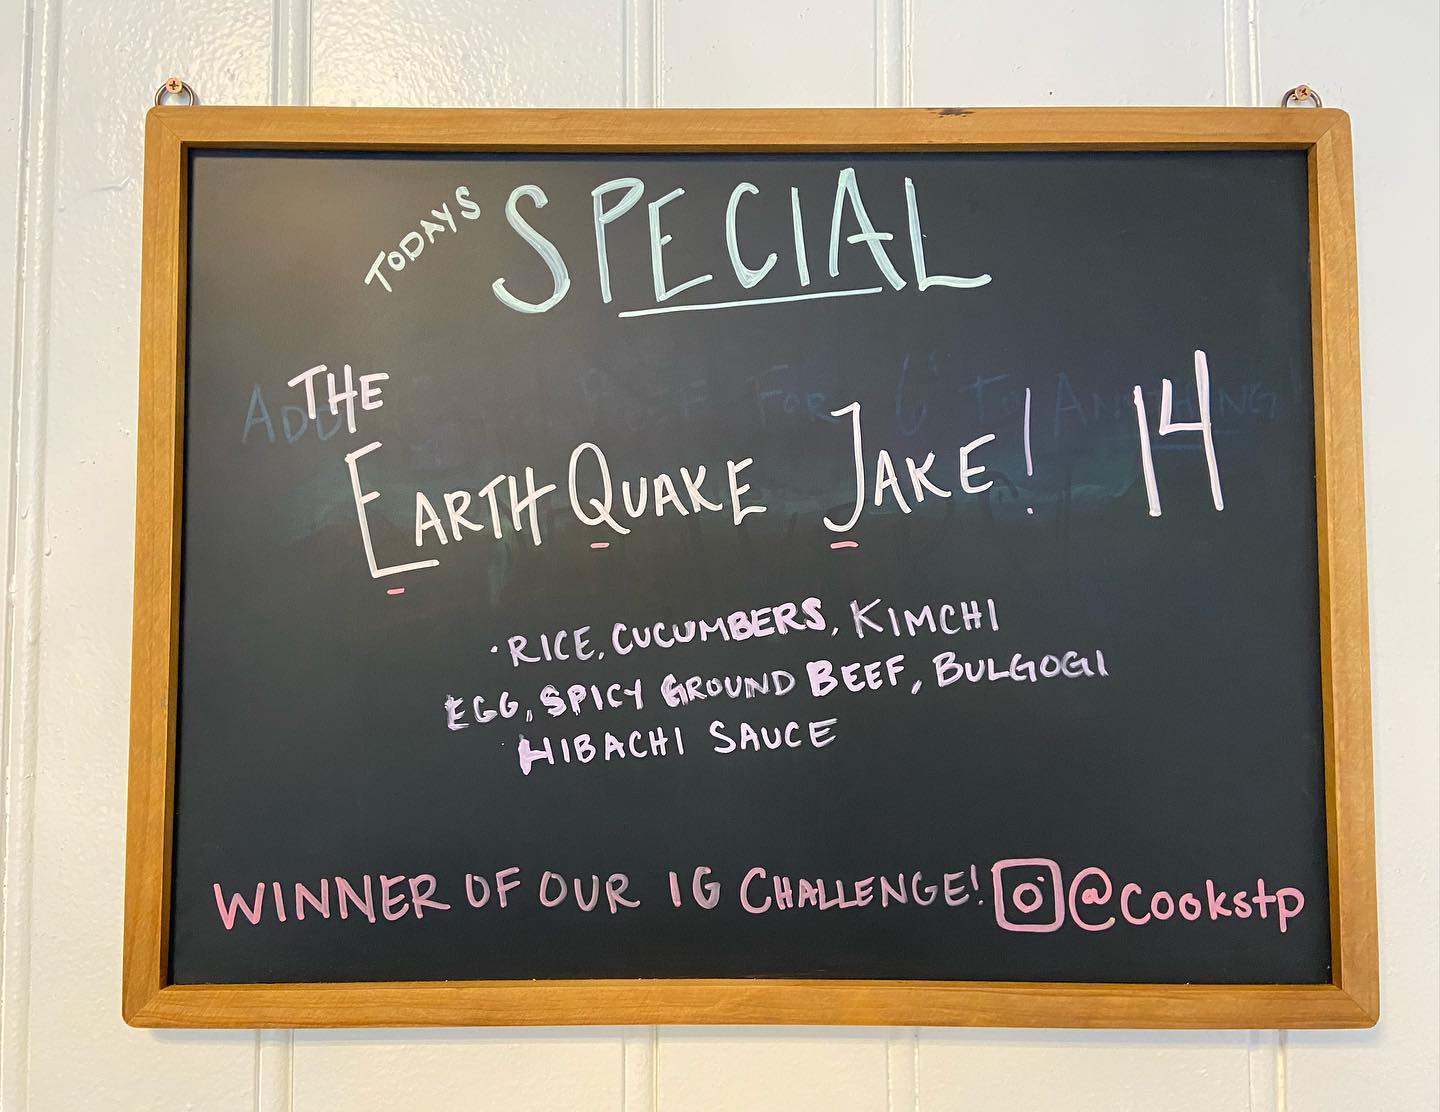 TODAYS SPECIAL
THE
EARTHQUAKE JAKE! 14
· RICE, CUCUMBERS, KIMCHI
EGG, SPICY GROUND BEEF, BULGOGI
HIBACHI SAUCE
WINNER OF OUR IG CHALLENGE! @cookstp